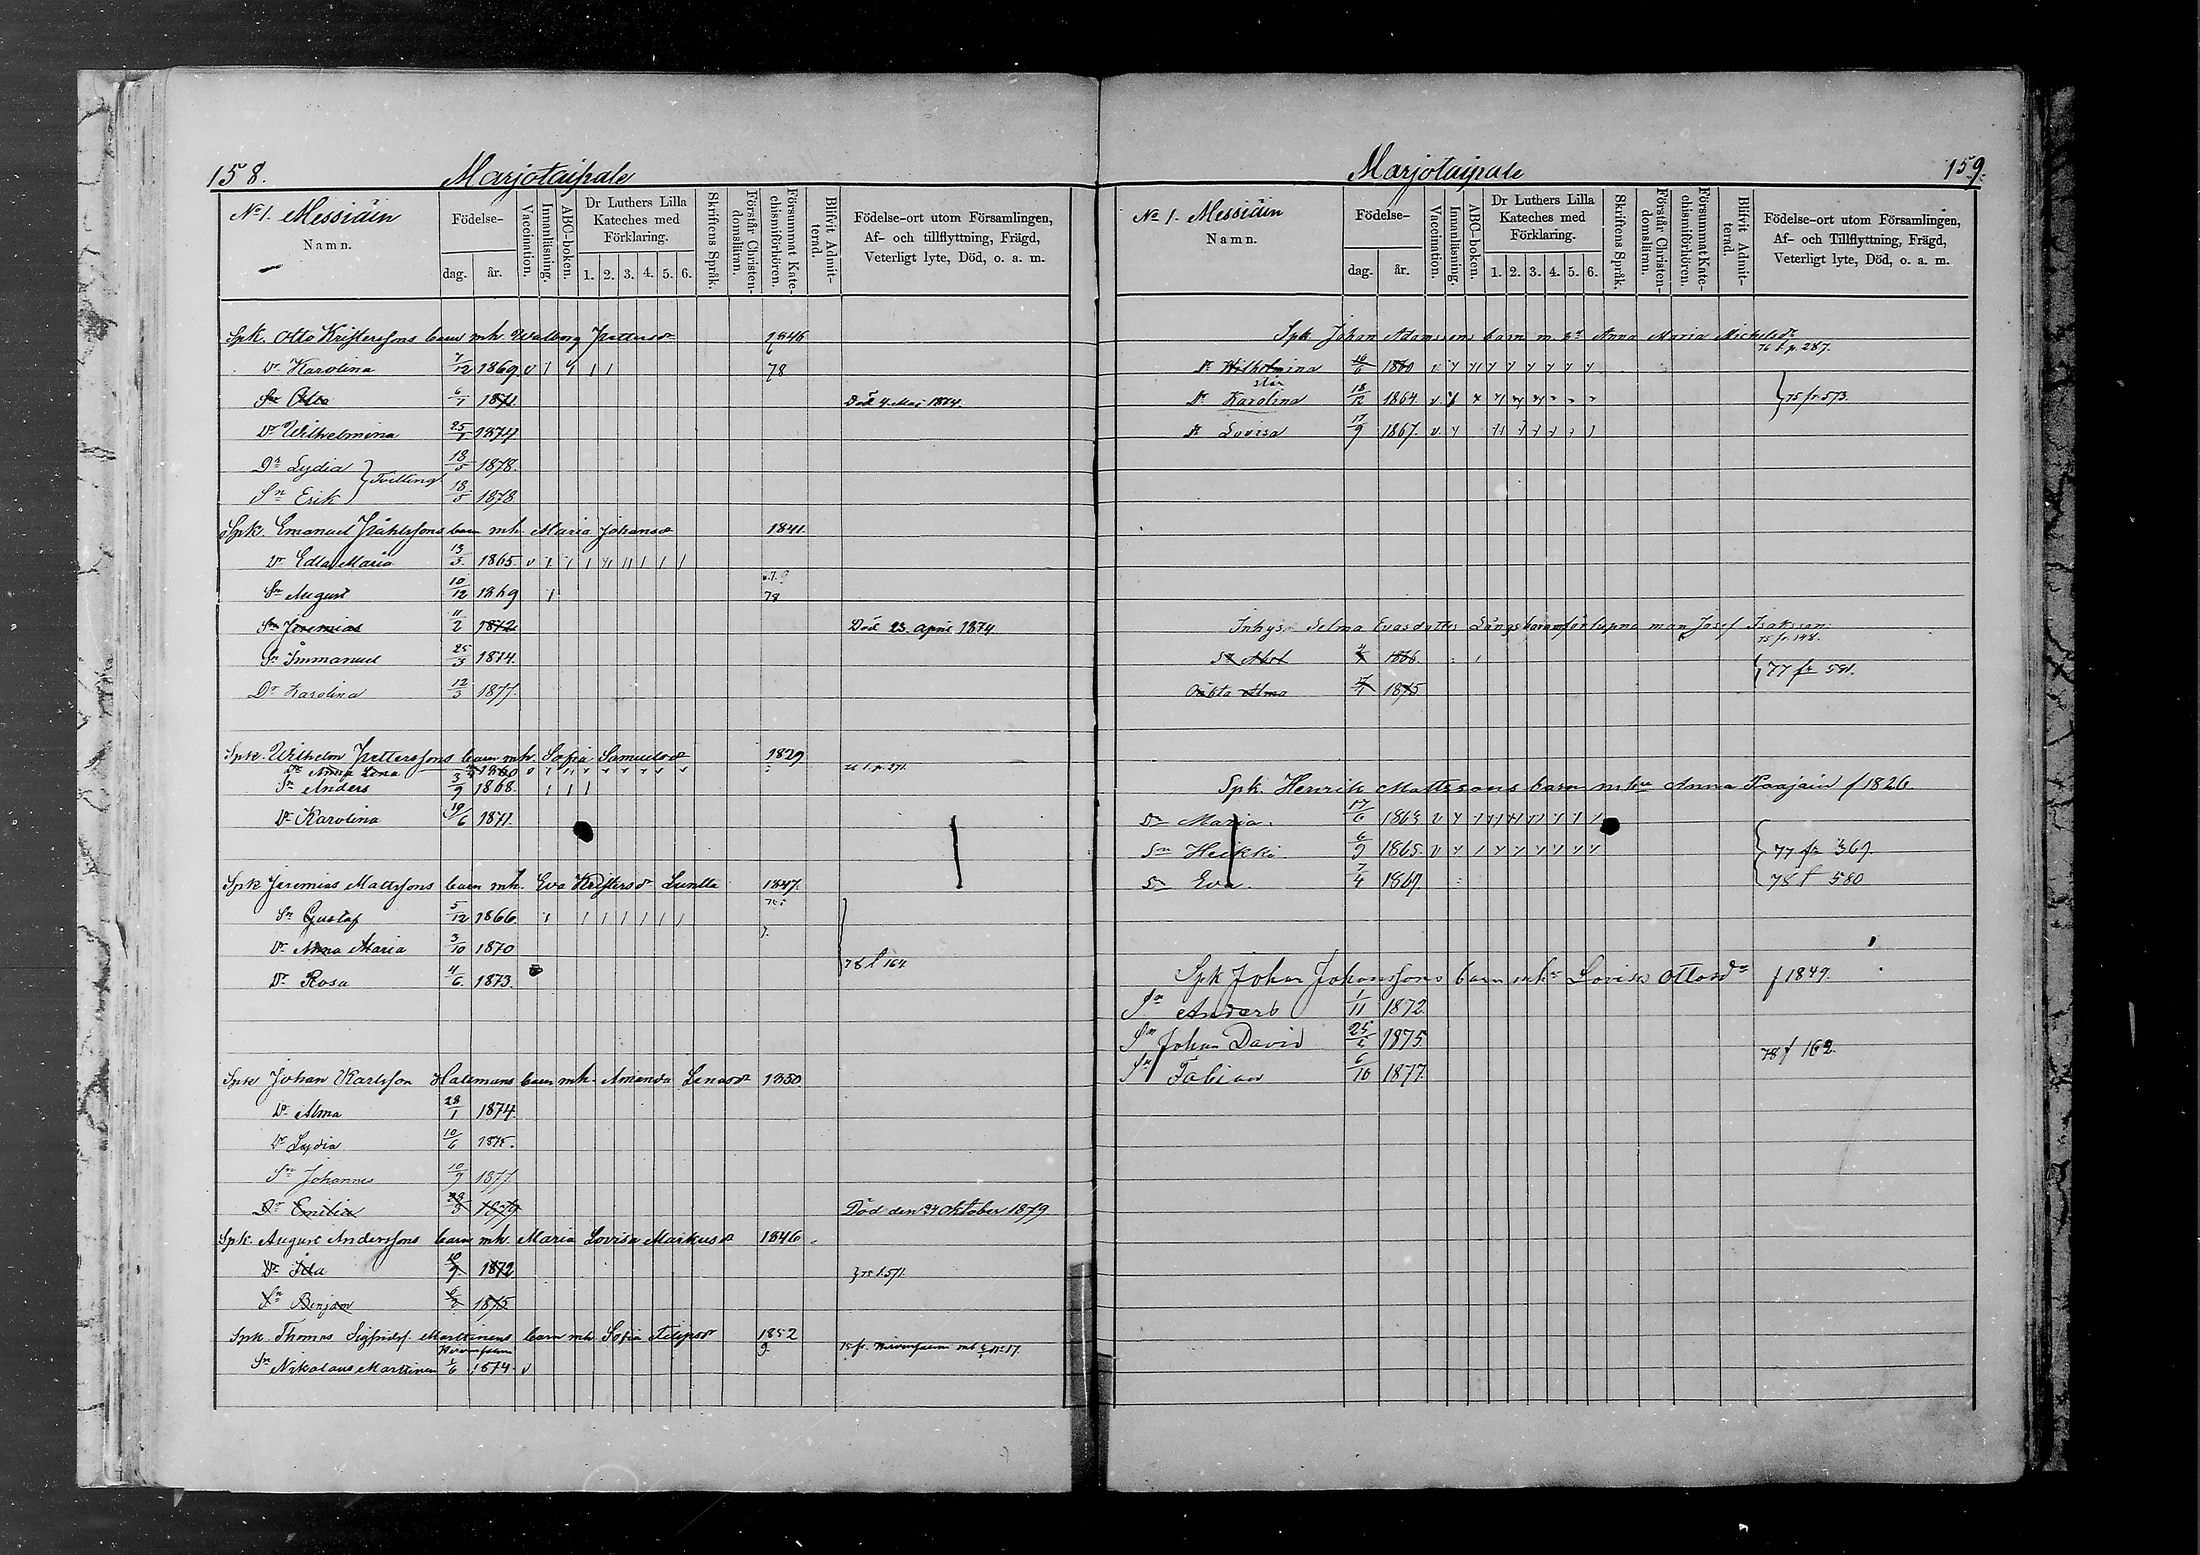 158.
Marjotaipale
No 1. Messidin
Namn.
Födelse-
dag.
år.
Vaccination.
Innanläsning.
ABC-boken.
Dr Luthers Lilla
Kateches med
Förklaring.
1. 2. 3. 4. 5. 6.
Skriftens Språk.
Förstår Christen-
domsläran.
Försummat Kate-
chismiförhören.
Blifvit Admit-
terad.
Födelse-ort utom Församlingen,
Af- och tillflyttning, Frägd,
Veterligt lyte, Död, o. a. m.
Spk. Otto Kristerssons barn mh. Walborg Pettersd 1846
Dr Karolina 7/12 1869 v 78
Sn Otto 6/1 1871 Död 4 Maj 1874.
Dr Wilhelmina 25/1 1874
Dr Lydia 18/5 1878.
Tvilling
Sn Erik 18/5 1878
Spk. Emanuel barn mh. Maria Johansd 1841.
Dr Edla Maria 13/3 1865. v
Sn August 10/12 1869 78
Sn Jeremias 11/2 1872 Död 23. April 1874
Sn Immanuel 25/3 1874.
Dr Karolina 12/3 1877.
Spk. Wilhelm Petterssons barn mh. Sofia Samuelsd 1829
Dr Anna Lena 1860 v
Sn Anders 3/9 1868.
Dr Karolina 19/6 1871.
Spk Jeremias Mattssons barn mh. Eva Kristersd 1847.
Sn Gustaf 5/12 1866
Dr Anna Maria 3/10 1870
78 f 164
Dr Rosa 4/6 1873.
Spk Johan Karlsson barn mh. Amanda Lenasd 1850
Dr Alma 28/1 1874.
Dr Lydia 10/6 1875.
Sn Johannes 10/9 1877.
Dr Emilia 28/3 1879 Död den 24 Oktober 1879
Spk. August Anderssons barn mh. Maria Lovisa Markusd 1846
Dr Ida 1872
75 f. 571.
Sn Benjam 1875
Spk. Thomas Sigfridsf. Marttinens barn mh. Sofia Filipsd 1852
Sn Nikolaus Marttinen 1/6 1874 v
159.
Marjotaipale
No 1. Messidin
Namn.
Födelse-
dag.
år.
Vaccination.
Innanläsning.
ABC-boken.
Dr Luthers Lilla
Kateches med
Förklaring.
1. 2. 3. 4. 5. 6.
Skriftens Språk.
Förstår Christen-
domsläran.
Försummat Kate-
chismiförhören.
Blifvit Admit-
terad.
Födelse-ort utom Församlingen,
Af- och Tillflyttning, Frägd,
Veterligt lyte, Död, o. a. m.
Spk. Johan Adamssons barn m. Anna Maria Mickelsdr
76 f. p. 287.
Dr Wilhelmina 16/6 1860 v
Dr Karolina 18/12 1864. v 75 fr 573.
Dr Lovisa 17/9 1867. v
Inhys. Selma Evasdotter barn man Josef Isaksson
75 fr. 148.
Sn Abel 1866
77 fr 591.
Alma 1875
Spk. Henrik Mattssons barn mhu Anna Paajain f 1826
Dr Maria. 17/6 1863 v
Sn Heikki 6/9 1865. v 77 fr 369.
Dr Eva. 7/4 1869 78 f 580
Spk Johan Johanssons barn mh Lovisa Ottosdr f 1849.
Sn Anders 1/11 1872
Sn Johan David 25/5 1875
78 f 162.
Sn Fabian 6/10 1877.